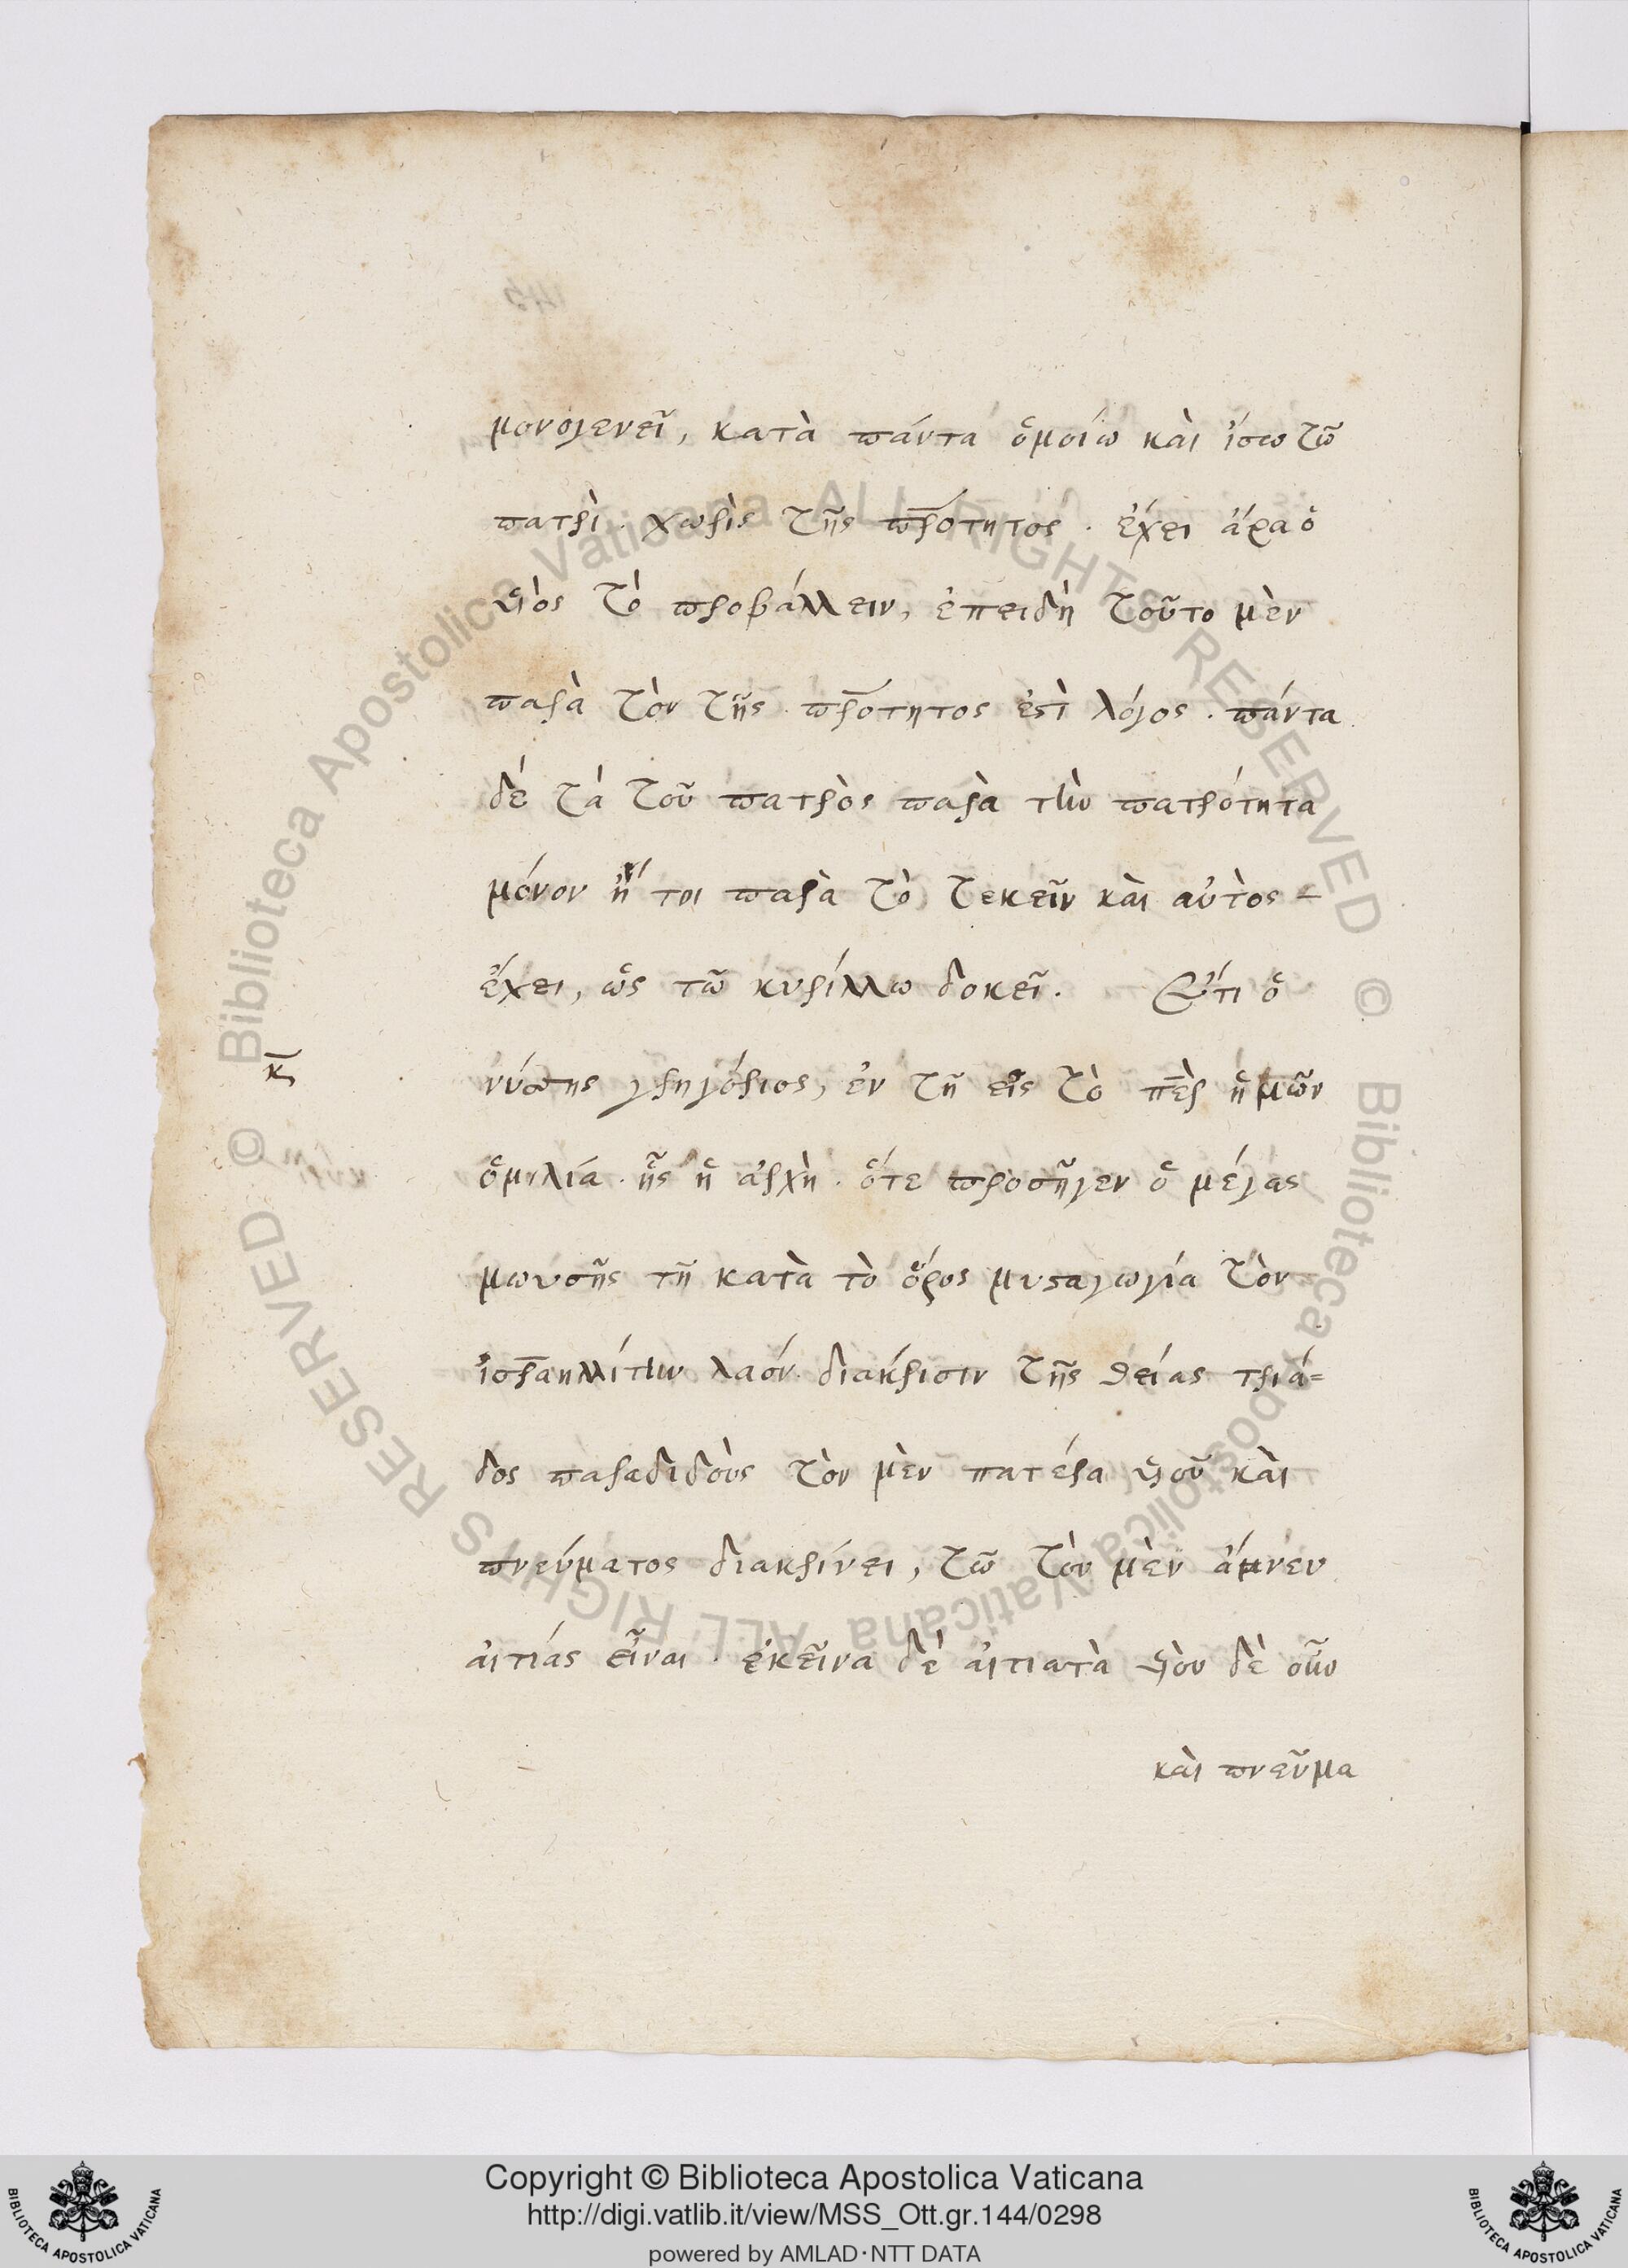 μονογενεῖ, κατὰ πάντα ὁμοίω καὶ ἴσω τῶ
πατρὶ. χωρὶς τῆς πρ̅οτητος. ἔχει ἄρα ὁ
υἱὸς τὸ προβάλλειν, ἐπειδὴ τοῦτο μὲν
παρὰ τὸν τῆς πρ̅οτητος ἐστὶ λόγος. πάντα
δὲ τὰ τοῦ πατρὸς παρὰ τὴν πατρότητα
μόνον ἤ τοι παρὰ τὸ τεκεῖν καὶ αὐτὸς
ἔχει, ὡς τῶ κυρίλλω δοκεῖ. Ὅτι ὁ
κ̅
νύσσης γρηγόριος, ἐν τῆ εἰς τὸ π̅ὲρ ἡμῶν
ὁμιλία. ἧς ἡ ἀρχὴ. ὅτε προσῆγεν ὁ μέγας
μωυσῆς τῆ κατὰ τὸ ὄρος μυσταγωγία τὸν
ἰσρ̅αηλλίτην λαόν. διακρισιν τῆς θείας τριά=
δος παραδιδοὺς τὸν μὲν πατέρα υἱοῦ καὶ
πνεύματος διακρίνει, τῶ τὸν μὲν ἄμνευ
αἰτιάς εἶναι. ἐκεῖνα δὲ αἰτιατὰ υἱὸν δὲ οὖν
καὶ πνεῦμα
Copyright © Biblioteca Apostolica Vaticana
http://digi.vatlib.it/view/MSS_Ott.gr.144/0298
powered by AMLAD·NTT DATA
BIBLIOTECA APOSTOLICA VATICANA
BIBLIOTECA APOSTOLICA VATICANA
© Biblioteca Apostolica Vaticana ALL RIGHTS RESERVED
© Biblioteca Apostolica Vaticana ALL RIGHTS RESERVED